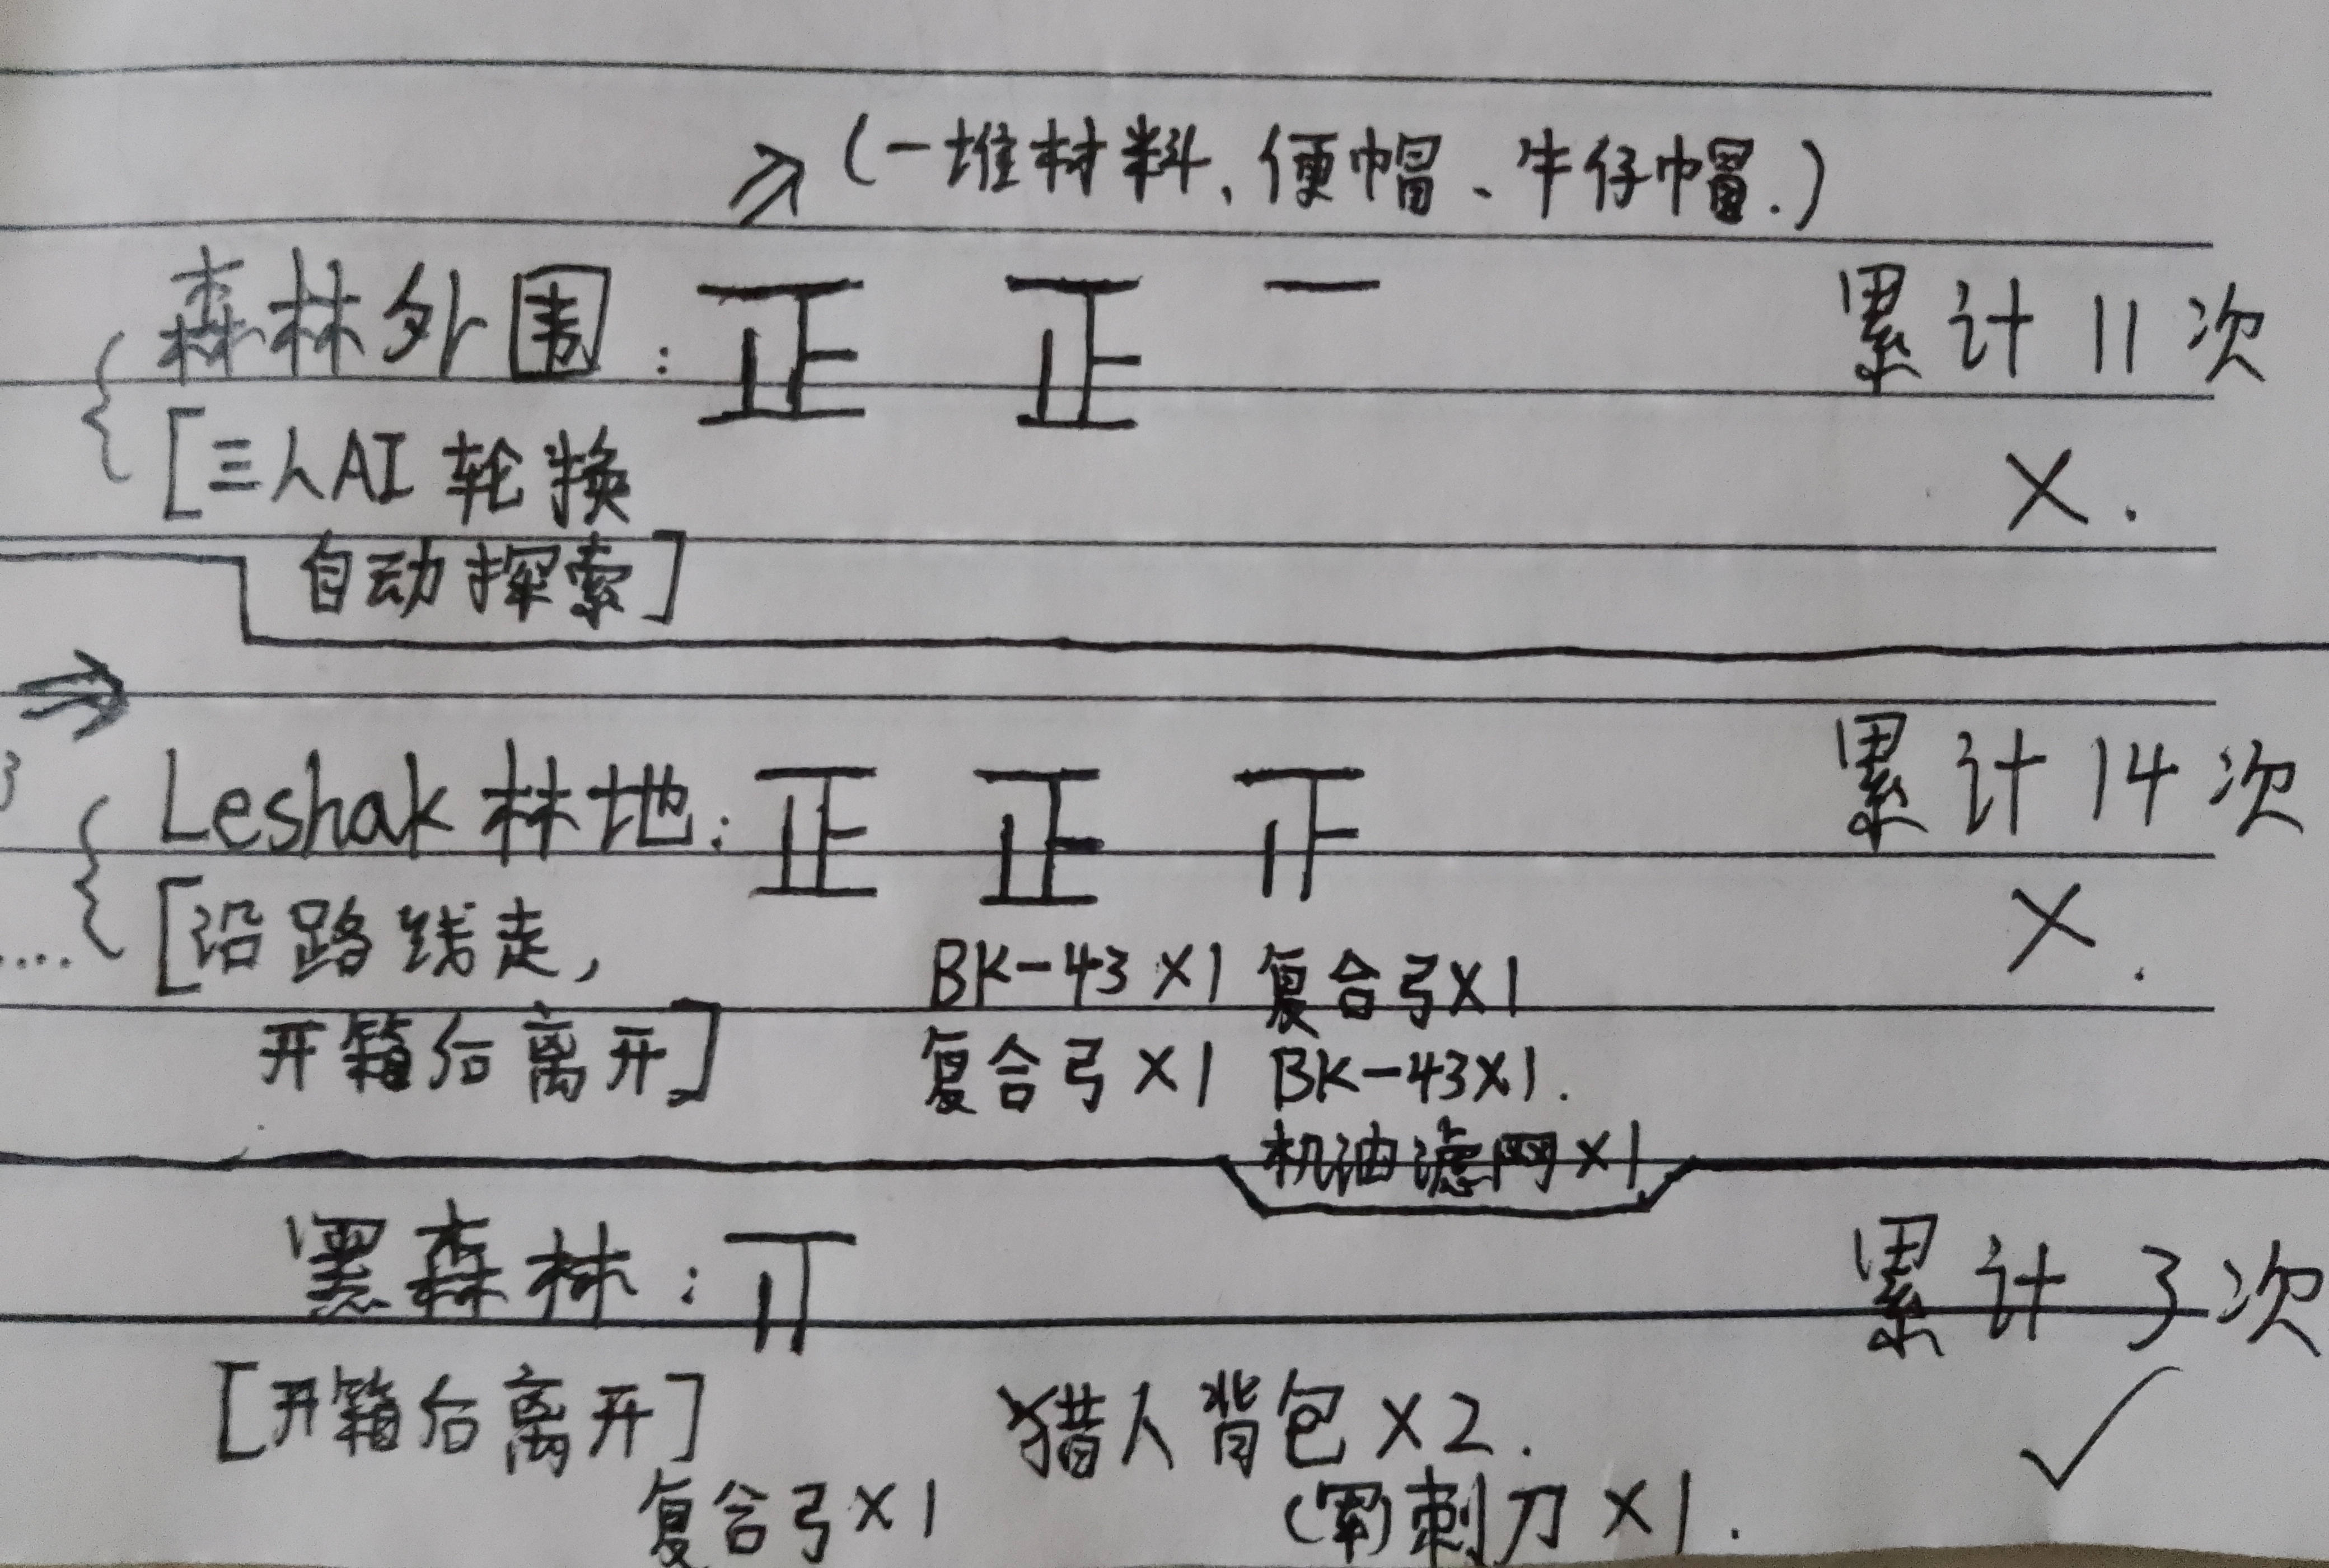 (一堆材料、便帽、牛仔帽.)
森林外围: 正 正 一 累计11次
[三人AI轮换 ×.
自动探索]
Leshak林地: 正 正 累计14次
[沿路线走, ×.
BK-43×1 复合弓×1
开箱后离开] 复合弓×1 BK-43×1.
机油滤网×1
黑森林: 累计3次
[开箱后离开] 猎人背包×2. ✓
复合弓×1 刺刀×1.